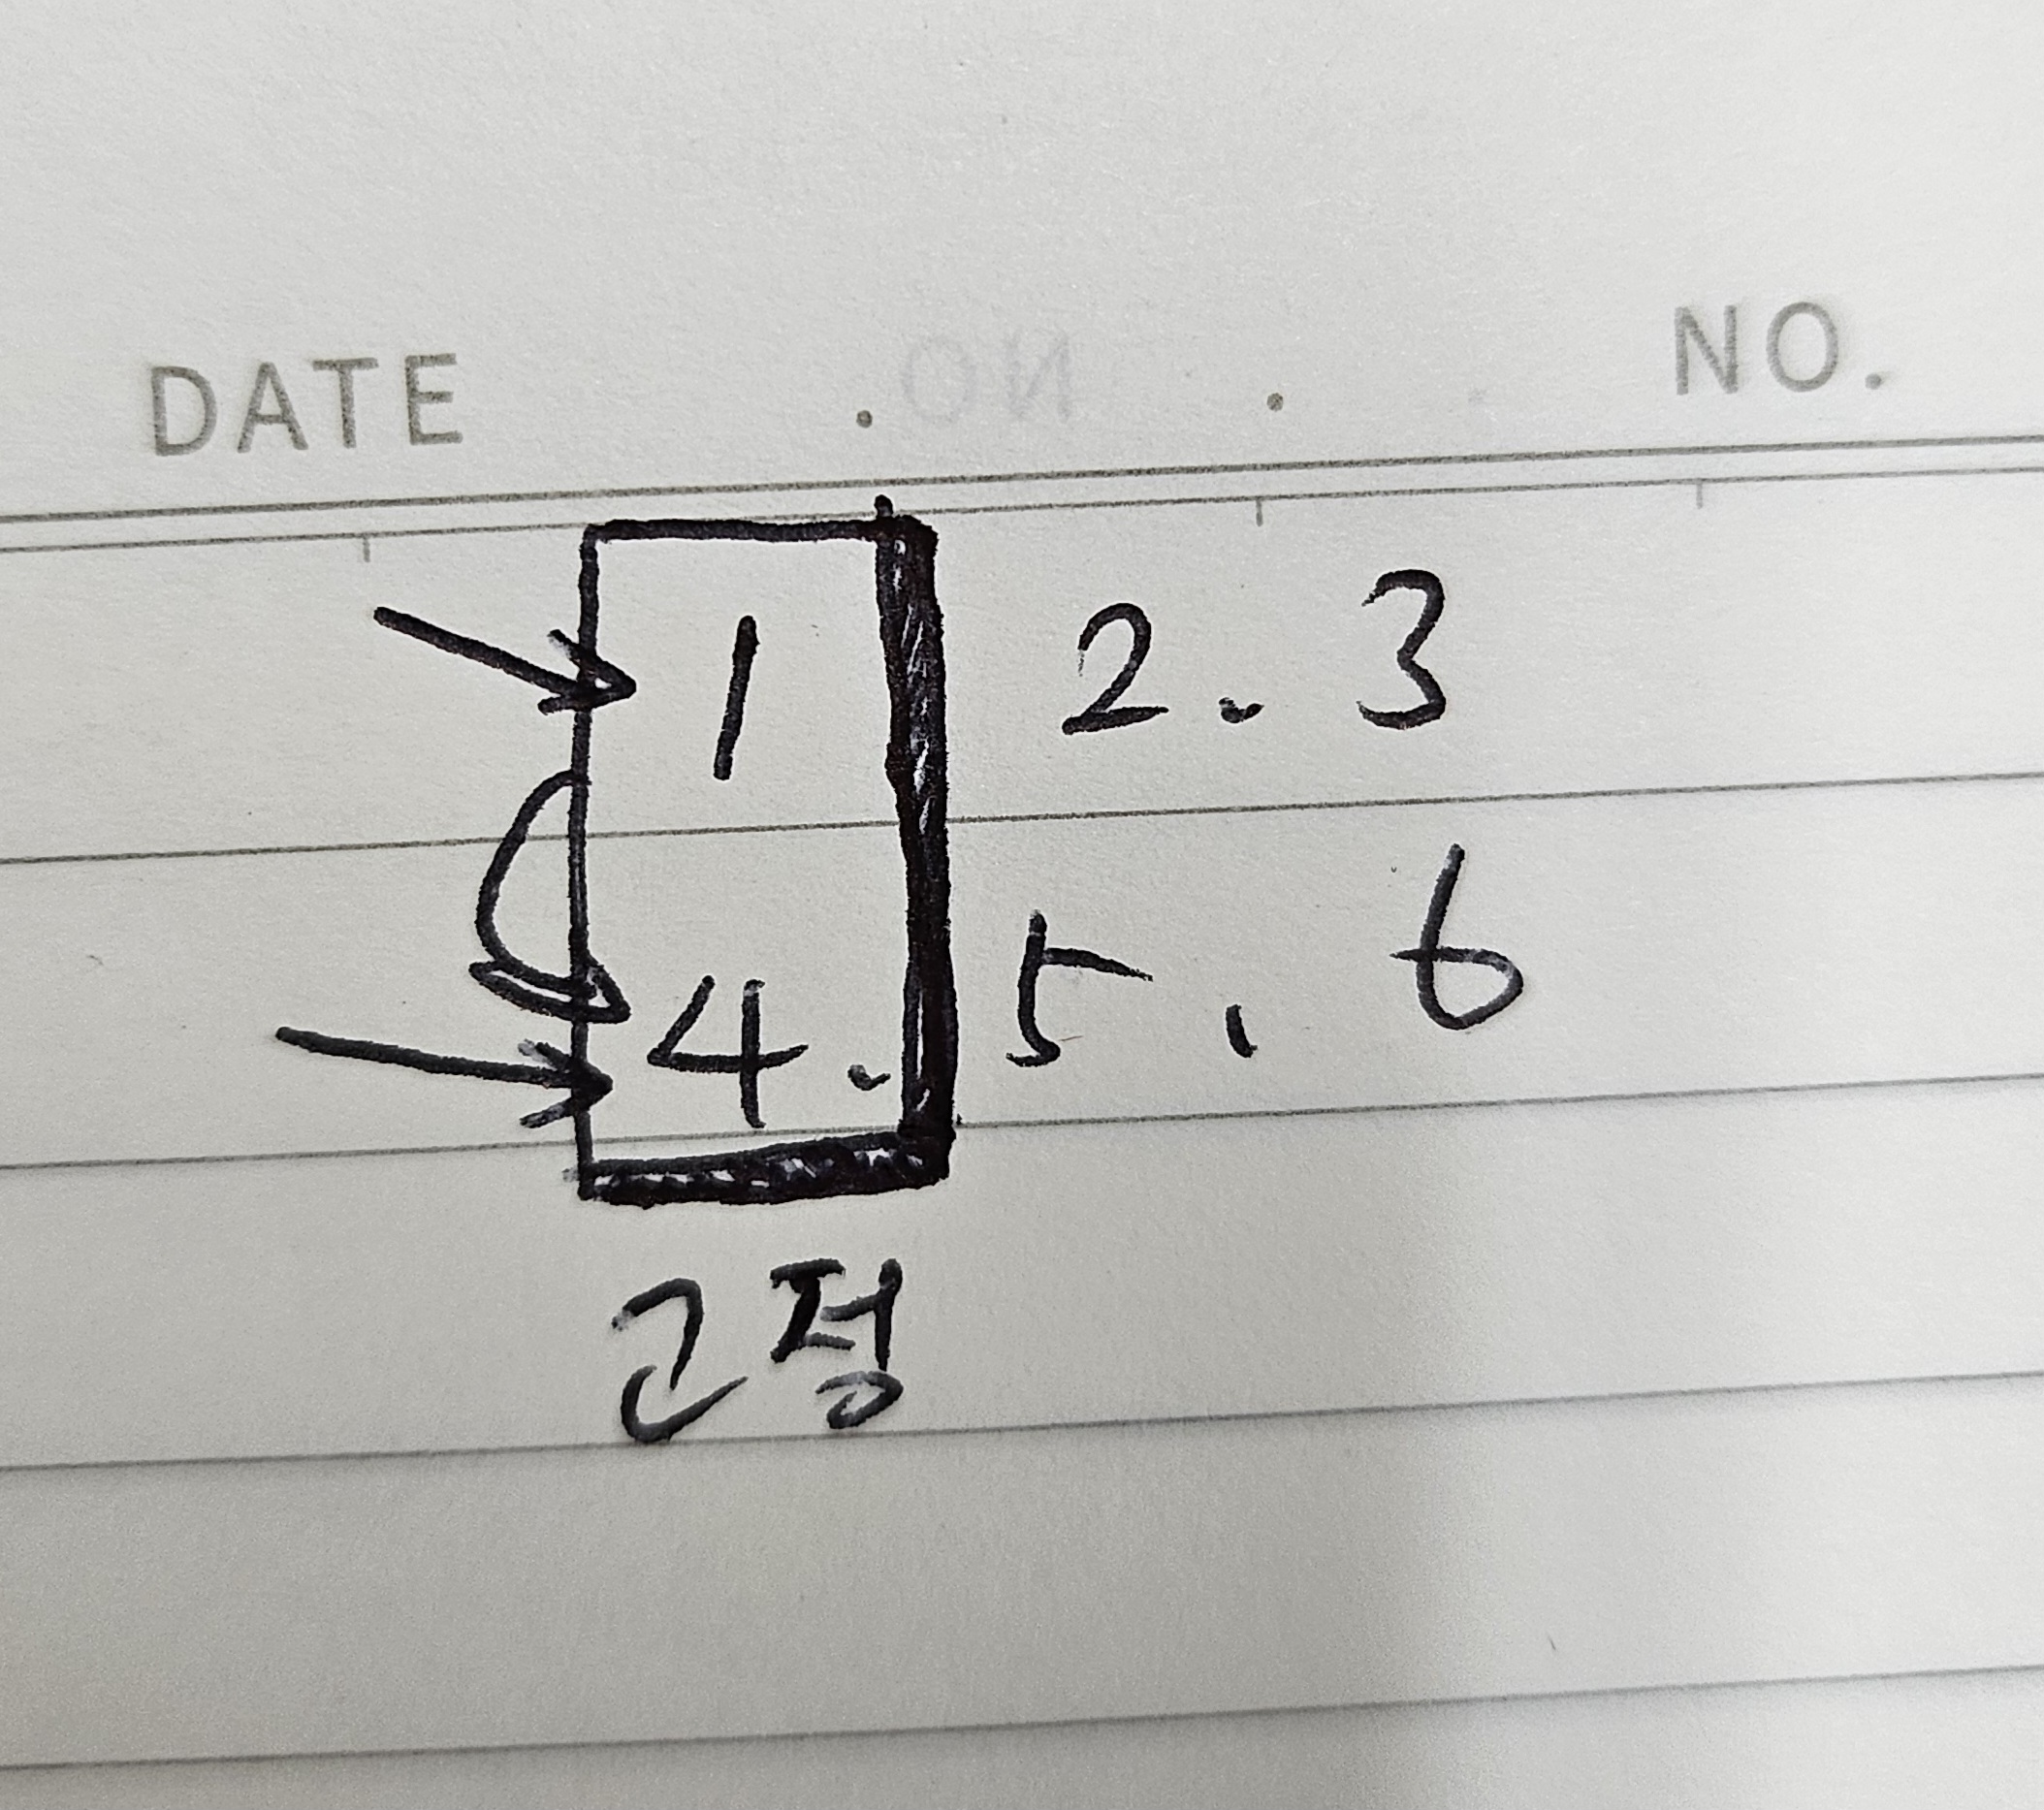 DATE . . NO.
1 2. 3
4. 5, 6
2정